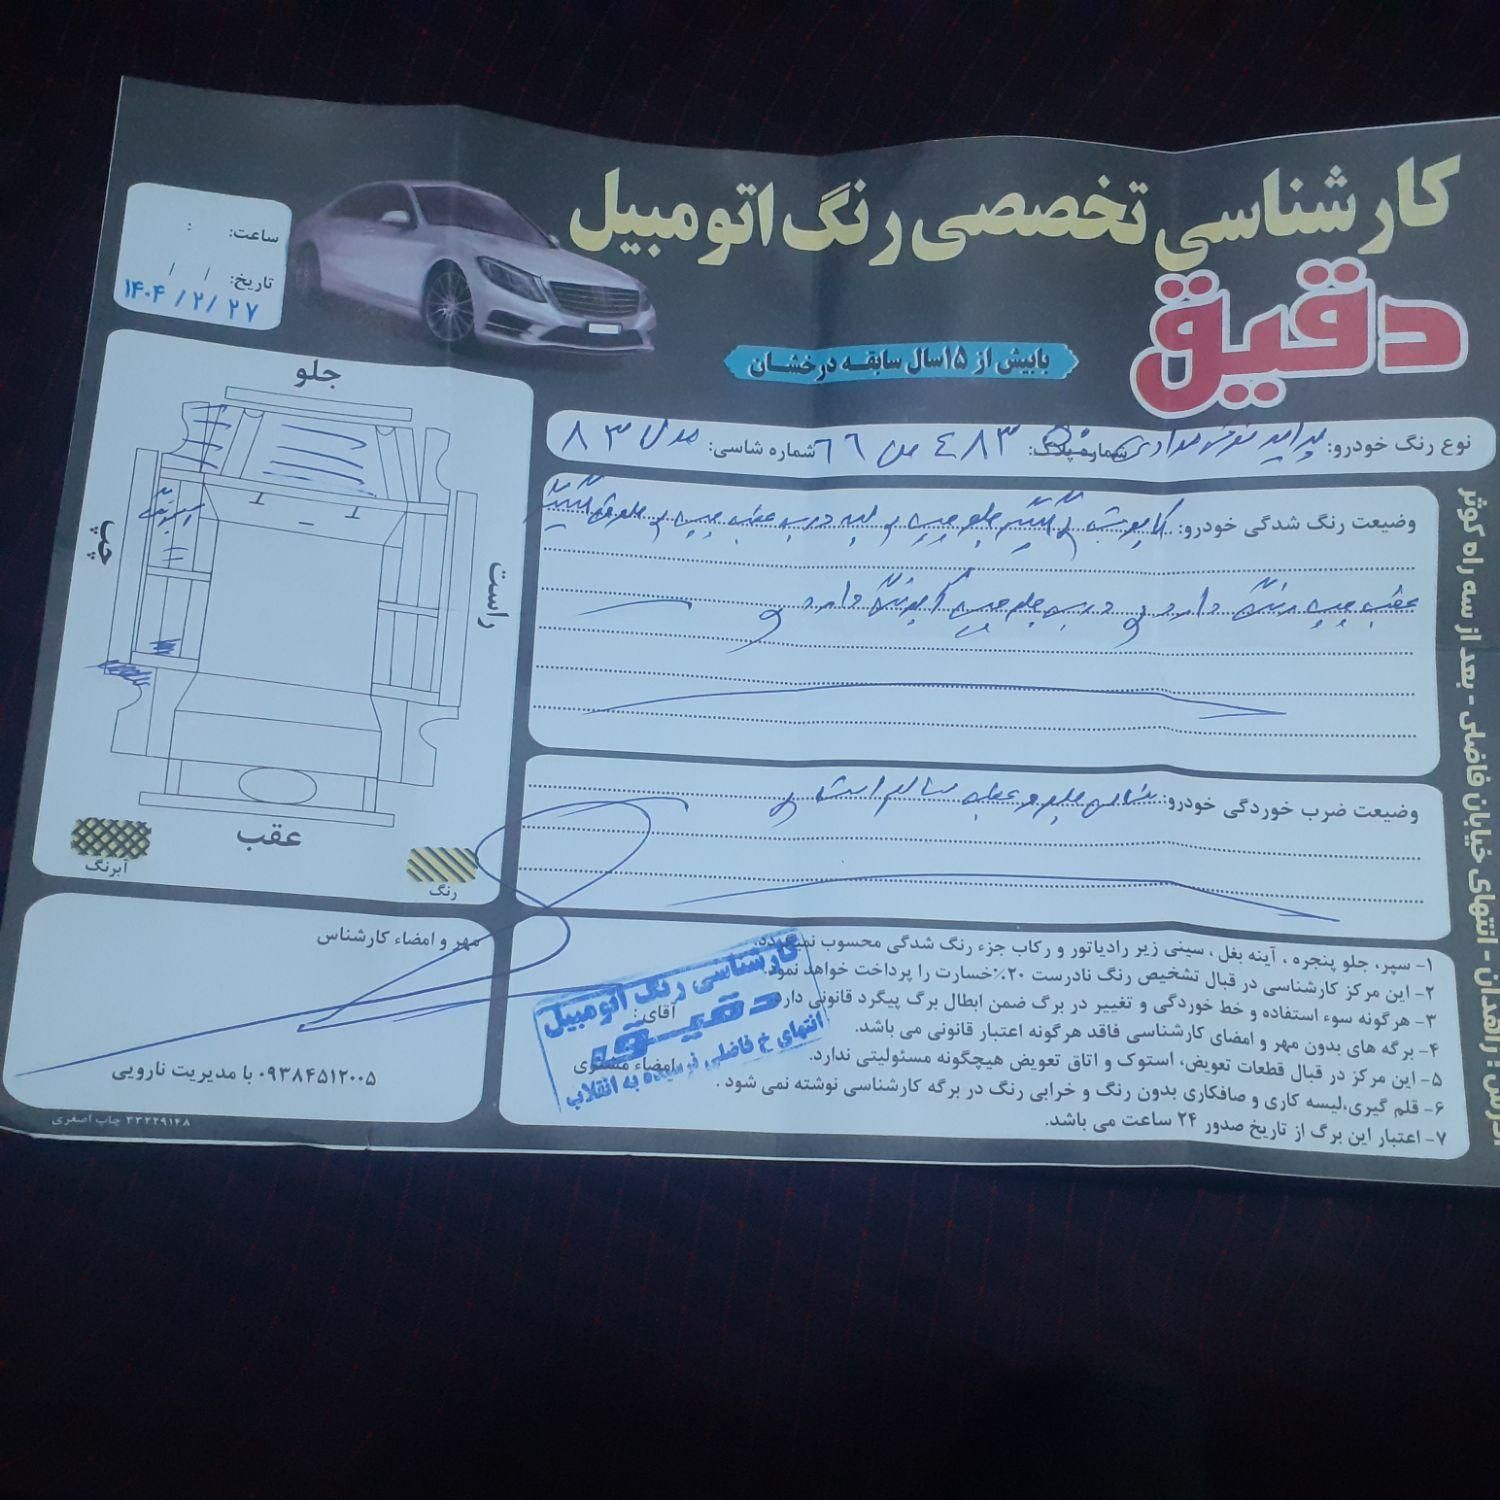 کارشناسی تخصصی رنگ اتومبیل
دقیق
با بیش از ۱۵ سال سابقه درخشان
ساعت: :
تاریخ: / /
۱۴۰۴/۲/۲۷
نوع رنگ خودرو: پراید نوک مدادی شماره پلاک: ۴۸۳ ص ۶۶ شماره شاسی: مدل ۸۳
وضعیت رنگ شدگی خودرو: کاپوت و گلگیر جلو چپ و لبه درب عقب چپ و جلو گلگیر
عقب چپ رنگ دارد و درب جلو چپ آبرنگ دارد
وضعیت ضرب خوردگی خودرو: شاسی جلو و عقب سالم است
جلو
چپ
راست
عقب
آبرنگ
رنگ
مهر و امضاء کارشناس
۰۹۳۸۴۵۱۲۰۰۵ با مدیریت نارویی
۳۳۲۲۹۱۴۸ چاپ اصغری
۱- سپر، جلو پنجره ، آینه بغل ، سینی زیر رادیاتور و رکاب جزء رنگ شدگی محسوب نمیگردد.
۲- این مرکز کارشناسی در قبال تشخیص رنگ نادرست ۲۰٪ خسارت را پرداخت خواهد نمود.
۳- هرگونه سوء استفاده و خط خوردگی و تغییر در برگ ضمن ابطال برگ پیگرد قانونی دارد
۴- برگه های بدون مهر و امضای کارشناسی فاقد هرگونه اعتبار قانونی می باشد.
۵- این مرکز در قبال قطعات تعویض، استوک و اتاق تعویض هیچگونه مسئولیتی ندارد.
۶- قلم گیری، لیسه کاری و صافکاری بدون رنگ و خرابی رنگ در برگه کارشناسی نوشته نمی شود .
۷- اعتبار این برگ از تاریخ صدور ۲۴ ساعت می باشد.
آقای:
امضاء مشتری
کارشناسی رنگ اتومبیل
دقیق
انتهای خ فاضلی نرسیده به انقلاب
آدرس: زاهدان - انتهای خیابان فاضلی - بعد از سه راه کوثر